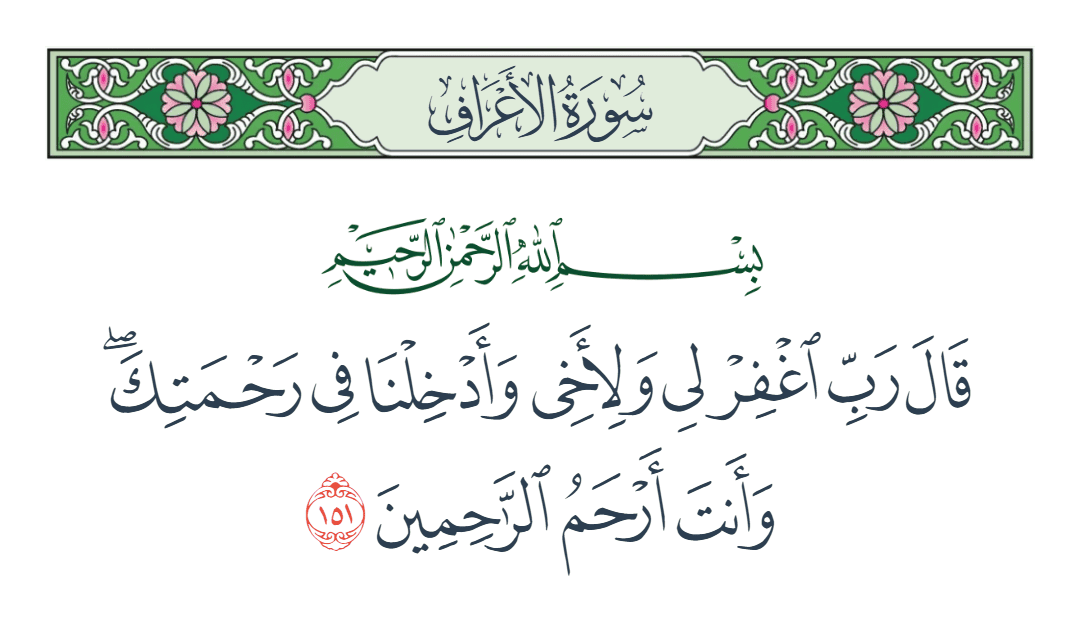 سُورَةُ الأَعْرَافِ
بِسْمِ ٱللَّهِ ٱلرَّحْمَٰنِ ٱلرَّحِيمِ
قَالَ رَبِّ ٱغْفِرْ لِى وَلِأَخِى وَأَدْخِلْنَا فِى رَحْمَتِكَ ۖ
وَأَنتَ أَرْحَمُ ٱلرَّٰحِمِينَ ١٥١